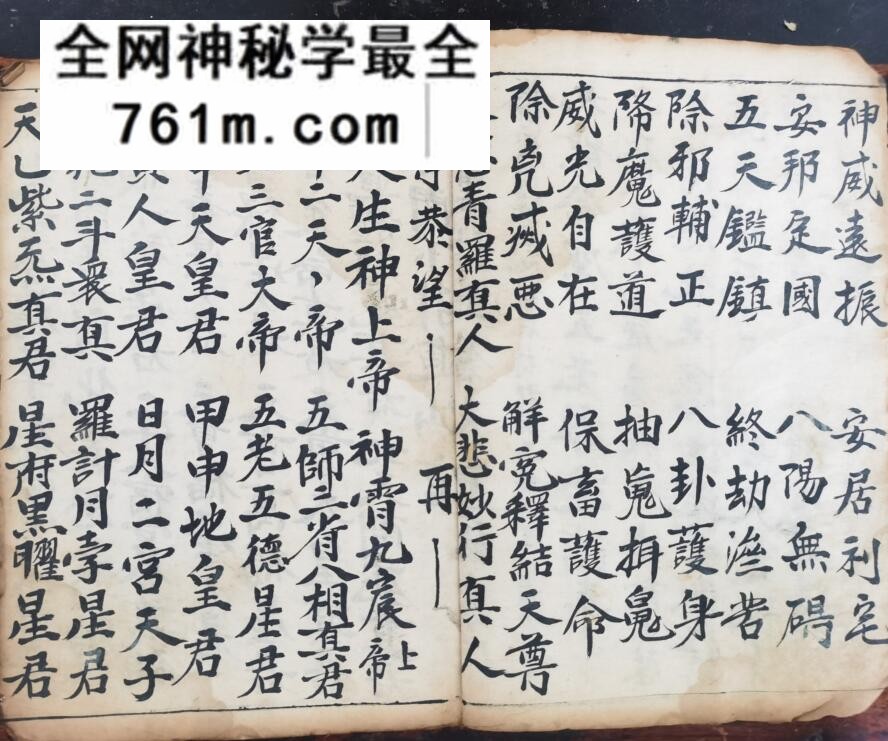 全网神秘学最全
761m.com
神威遠振 安居利宅
安邦定國 八陽無碍
五天鑑鎮 終劫
除邪輔正 八卦護身
降魔護道 抽
威光自在 保畜護命
除兇滅惡 解寃釋結天尊
青羅真人 大悲妙行真人
恭望 再
生神上帝 神霄九宸上帝
二天丶帝 五師三省八相真君
三官大帝 五老五德星君
天皇君 甲申地皇君
人皇君 日月二宮天子
二斗衆真 羅計月孛星君
天乙紫炁真君 星府黑曜星君